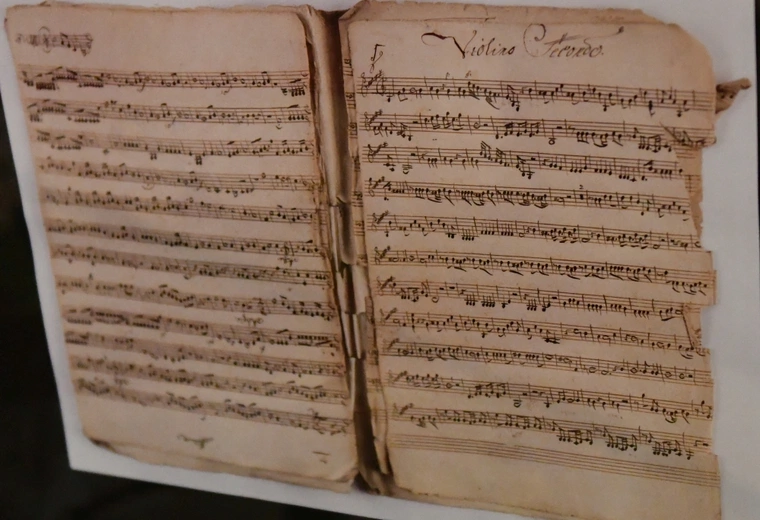 Violino Secondo.